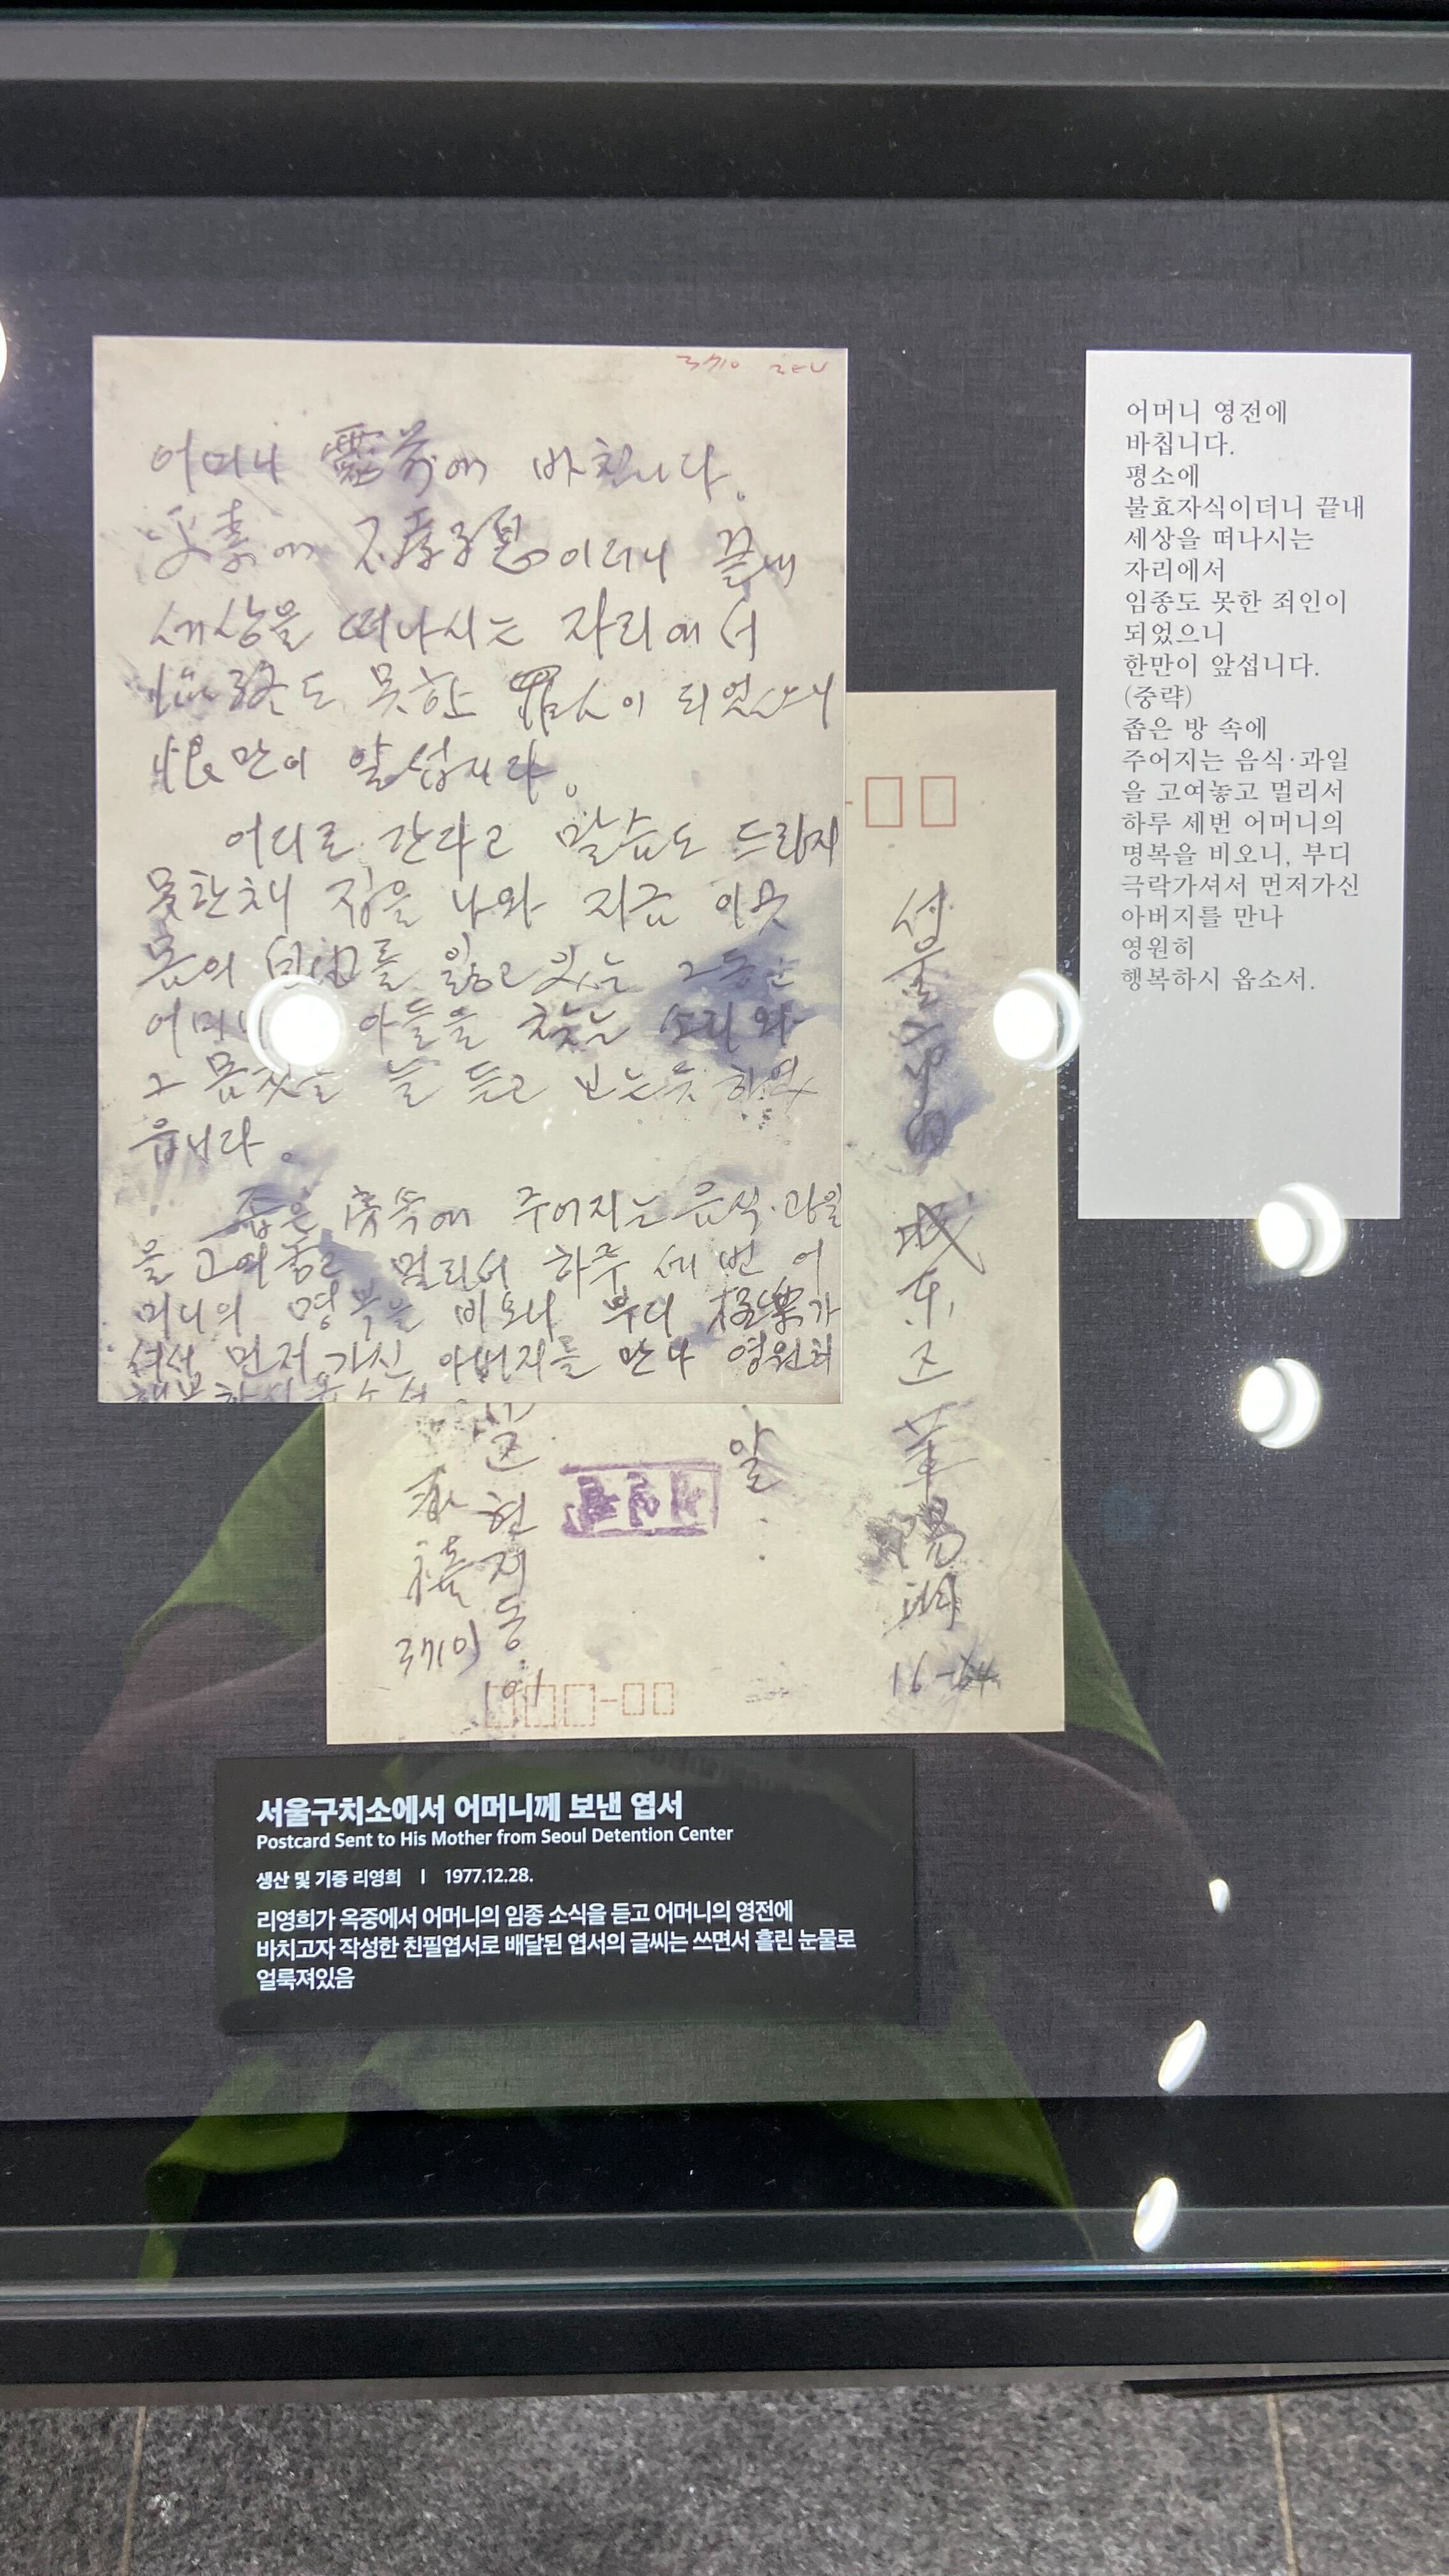 어머니 靈前에 바칩니다.
平素에 不孝子息이더니 끝내
세상을 떠나시는 자리에서
臨終도 못한 罪人이 되었으니
恨만이 앞섭니다.
어디로 간다고 말씀도 드리지
못한채 집을 나와 지금 이곳
몸의 自由를 잃고 있는 그동안
어머니 아들을 찾는 소리와
그 몸짓을 늘 듣고 보는듯 하였
읍니다.
좁은 房 속에 주어지는 음식·과일
을 고여놓고 멀리서 하루 세 번 어
머니의 명복을 비오니 부디 極樂가
셔서 먼저 가신 아버지를 만나 영원히
행복하시 옵소서
서울
城東区
華陽洞
16-64
앞
현저동
101
어머니 영전에
바칩니다.
평소에
불효자식이더니 끝내
세상을 떠나시는
자리에서
임종도 못한 죄인이
되었으니
한만이 앞섭니다.
(중략)
좁은 방 속에
주어지는 음식·과일
을 고여놓고 멀리서
하루 세번 어머니의
명복을 비오니, 부디
극락가셔서 먼저가신
아버지를 만나
영원히
행복하시 옵소서.
서울구치소에서 어머니께 보낸 엽서
Postcard Sent to His Mother from Seoul Detention Center
생산 및 기증 리영희 | 1977.12.28.
리영희가 옥중에서 어머니의 임종 소식을 듣고 어머니의 영전에
바치고자 작성한 친필엽서로 배달된 엽서의 글씨는 쓰면서 흘린 눈물로
얼룩져있음